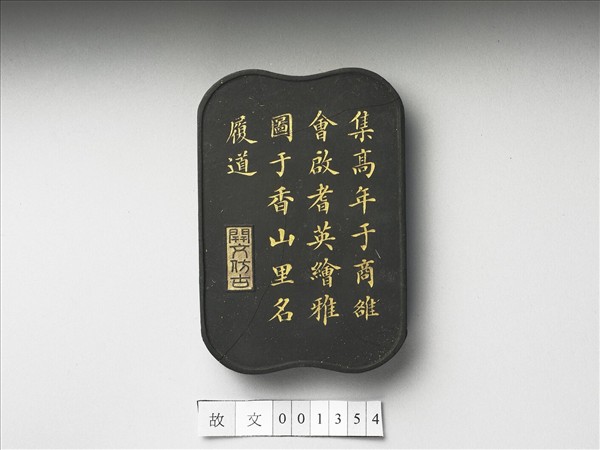 集髙年于商雒
會啟耆英繪雅
圖于香山里名
履道
開文仿古
故文001354